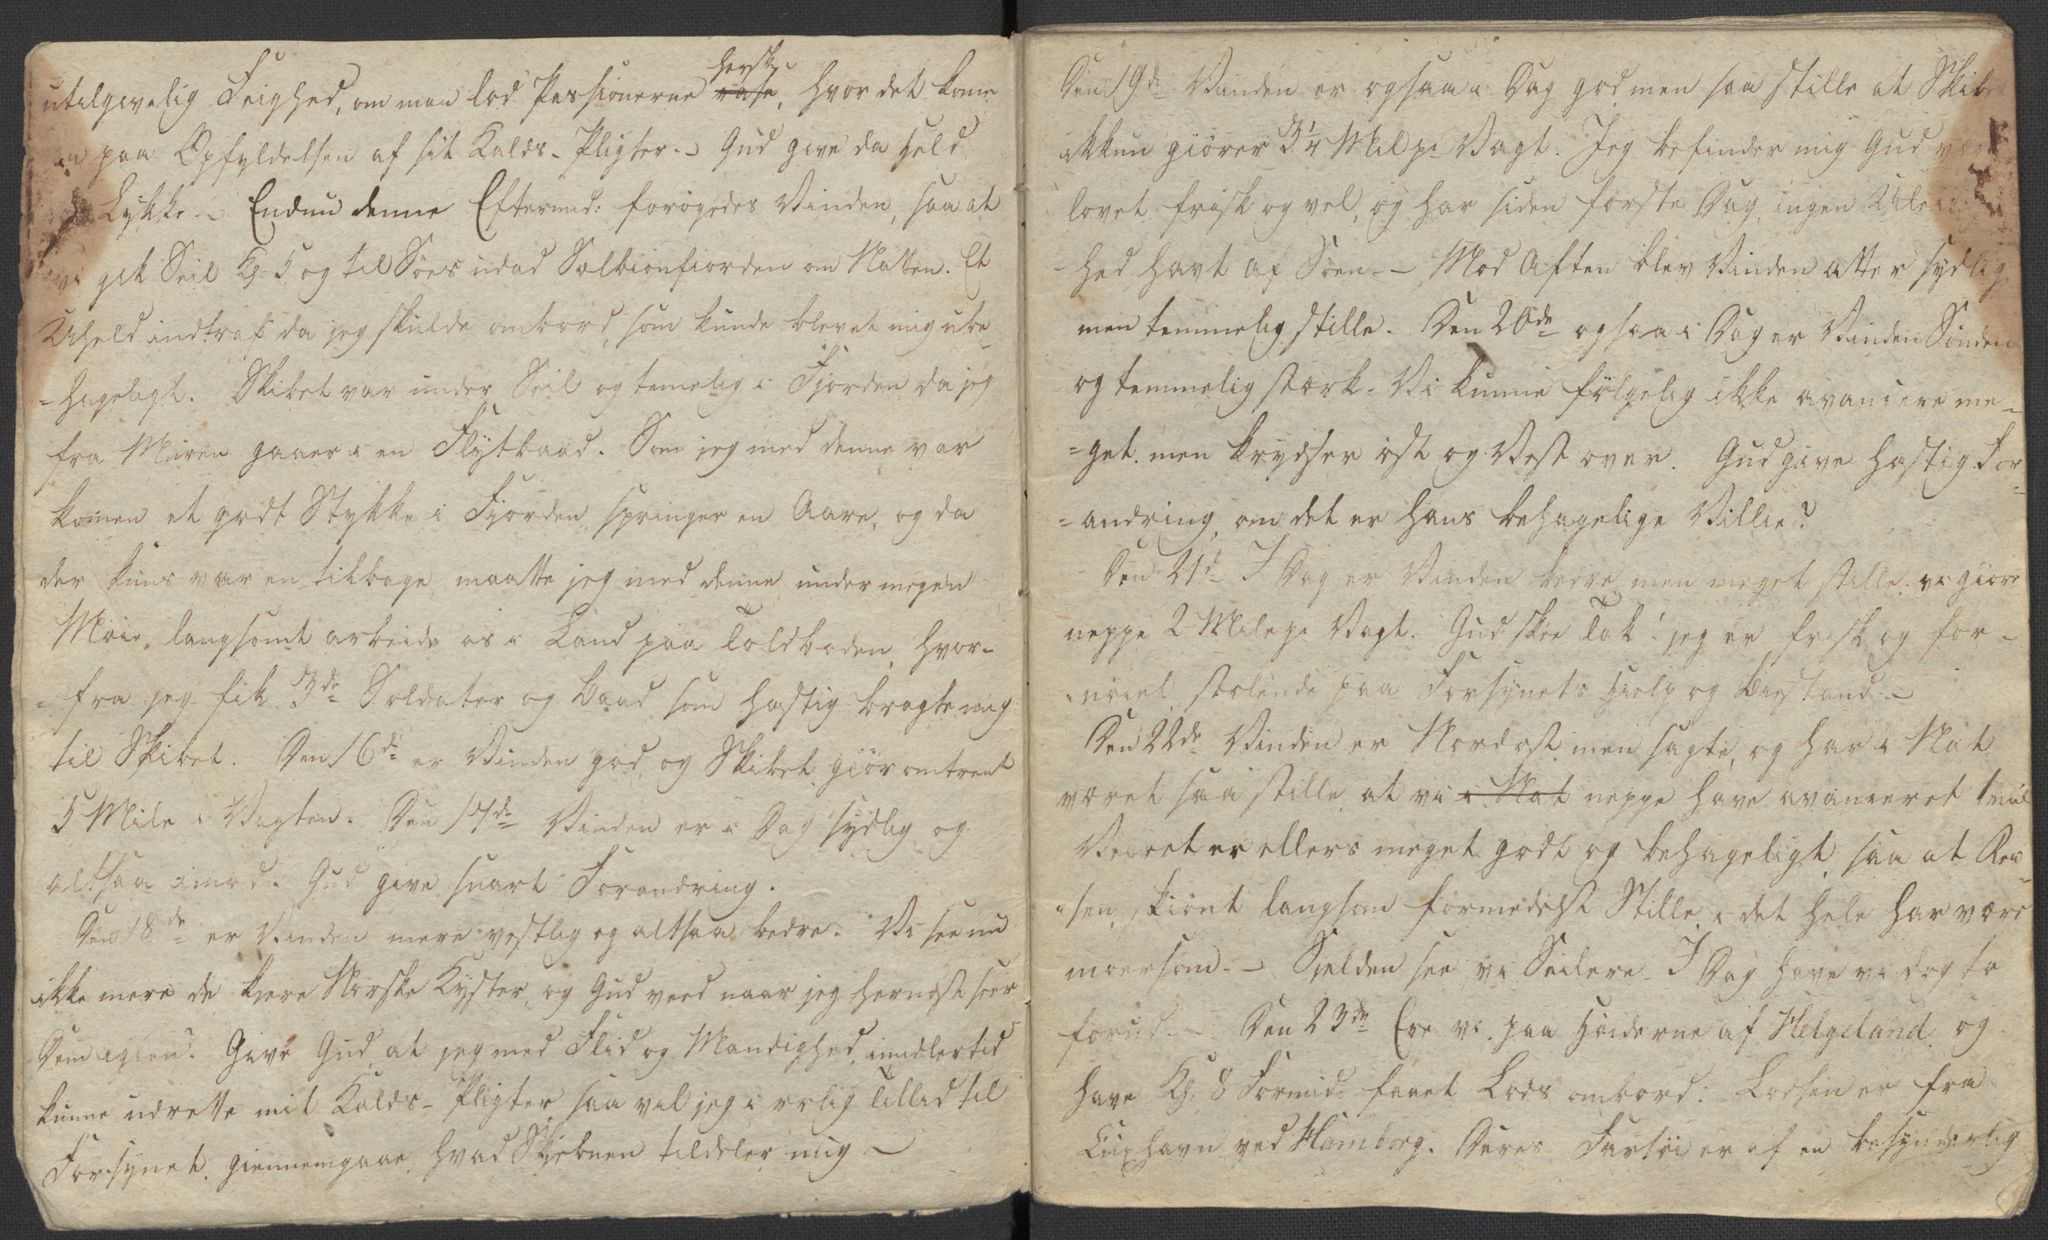 utilgivelig Feighed, om man lod Passionerne herske ~~rase~~, hvor det kome
paa Opfyldelsen af sit Kalds-Pligter. – Gud give da Held
Lykke – Endnu denne Eftermid: forøgedes Vinden, saa at
vi gik Seil Kl. 5 og til Søes udad Folbionfiorden om Natten. Et
Uheld indtraf da jeg skulde ombord, som kunde blevet mig ube-
=hageligt. Skibet var under Seil og temelig i Fjorden da jeg
fra Muren gaaer i en Flytbaad. Som jeg med denne var
komen et godt Stykke i Fjorden, springer en Aare, og da
der kuns var en tilbage, maatte jeg med denne under megen
Møie, langsomt arbeide os i Land paa Toldboden, hvor-
=fra jeg fik 3de Soldater og Baad som hastig bragte mig
til Skibet. Den 16de er Vinden god, og Skibet giør omtrent
5 Mile i Vagten. Den 17de Vinden er i Dag sydlig og
altsaa imod. Gud give snart Forandring.
Den 18de er Vinden mere vestlig og altsaa bedre. Vi see nu
ikke mere de kjere Norske Kyster, og Gud veed naar jeg hernæst seer
Dem igien. Give Gud, at jeg med Flid og Mandighed imidlertid
kunne udrette mit Kalds-Pligter, saa vil jeg i rolig Tillid til
Forsynet, giennemgaae, hvad Skjebnen tildeler mig –
Den 19de Vinden er ogsaa i Dag god, men saa stille at Skibet
ikkun giører 3 1/4 Mil pr Vagt. Jeg befinder mig Gud være
lovet, frisk og vel, og har siden første Dag, ingen Uleilig
hed havt af Søen. – Mod Aften blev Vinden atter sydlig
men temmelig stille. Den 20de ogsaa i Dag er Vinden Sønden
og temmelig stærk. Vi kunne følgelig ikke avancere me-
=get, men krydser øst og Vest over. Gud give hastig For-
=andring, om det er hans behagelige Villie?
Den 21de I Dag er Vinden bedre, men meget stille. vi giøre
neppe 2 Mile pr Vagt. Gud skee Tak! jeg er frisk og for-
=nøiet, stolende paa Forsynets Hielp og Bistand. –
Den 22de Vinden er Nordost, men sagte, og har i Nat
været saa stille, at vi ~~i Nat~~ neppe have avanceret 1 mil
Veiret er ellers meget godt og behageligt, saa at Rei-
=sen, skiønt langsom formedelst Stille, i det hele har været
moersom. – Sielden see vi Seilere. I Dag have vi dog to
forud. – Den 23de Ere vi paa Høiderne af Helgeland og
have Kl. 8 Formid: faaet Lods ombord. Lodsen er fra
Cuxhavn ved Hamborg. Deres Fartøi er af en besynderlig